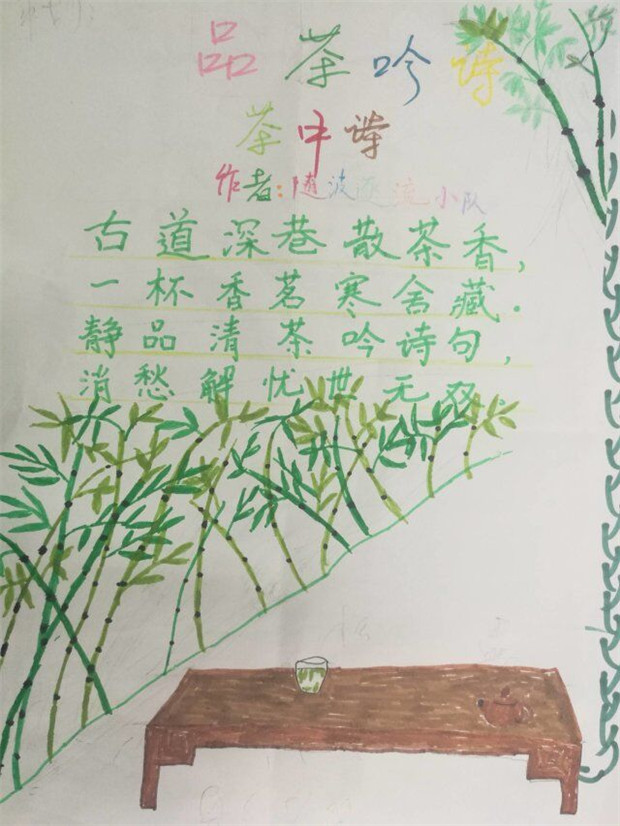 品茶吟诗
茶中诗
作者:随波逐流小队
古道深巷散茶香,
一杯香茗寒舍藏.
静品清茶吟诗句,
消愁解忧世无双.